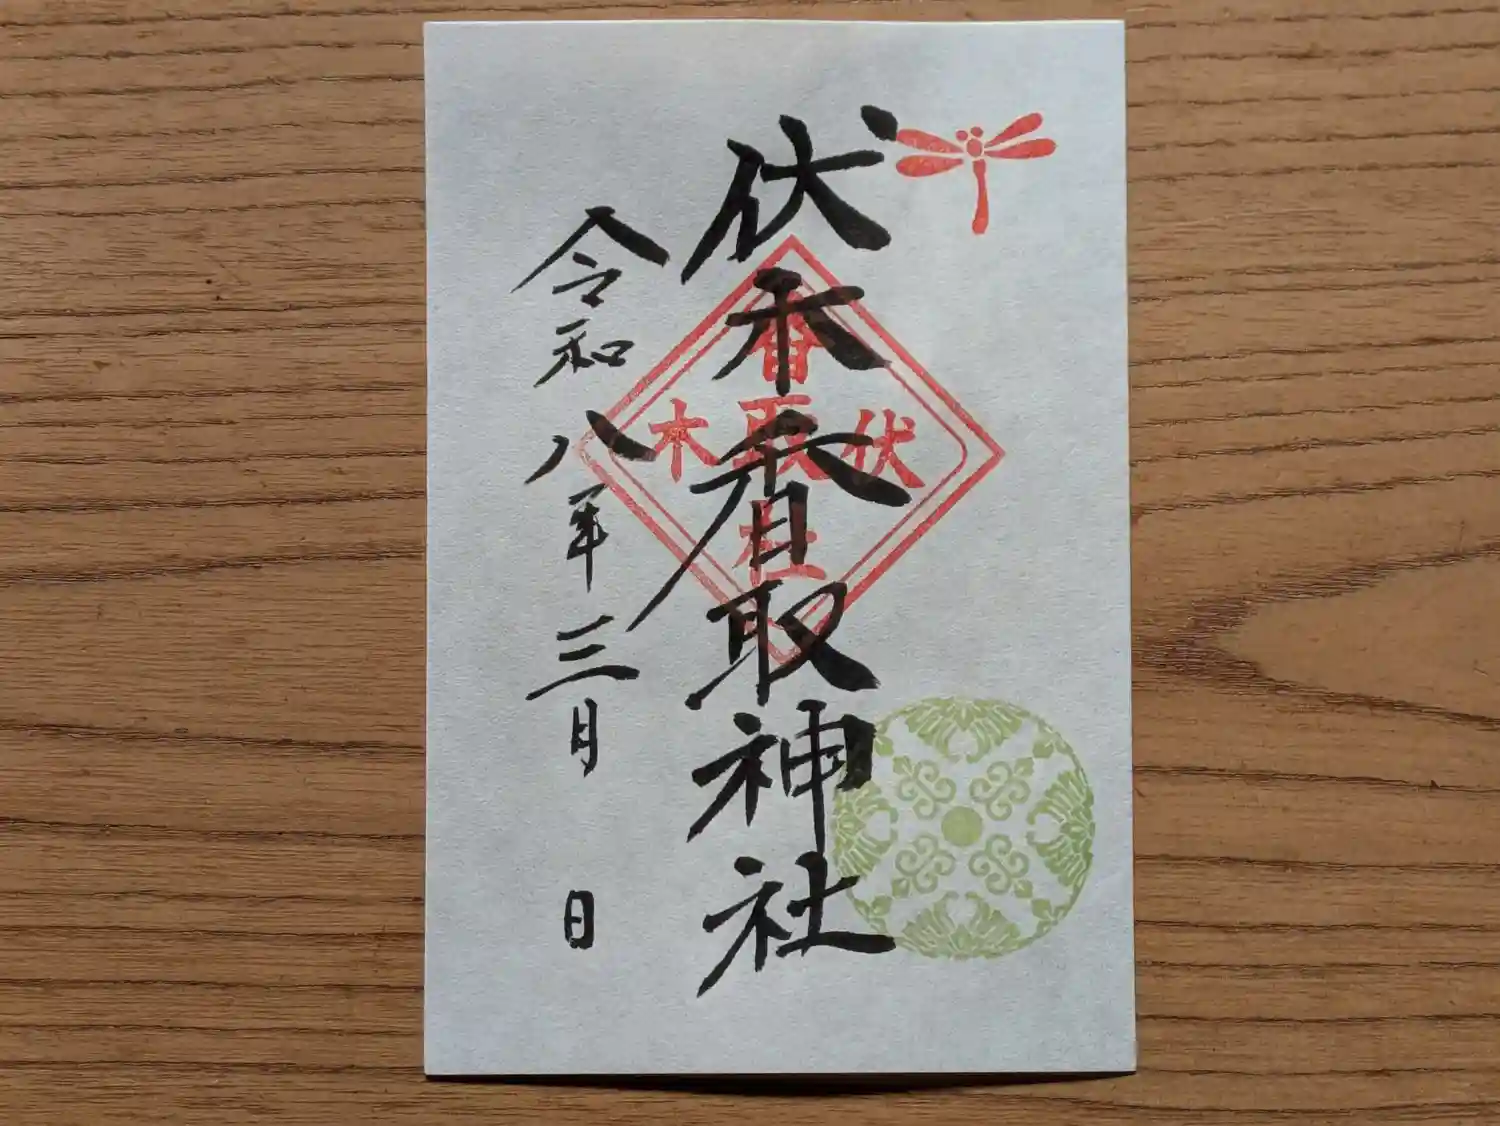 伏木香取神社
令和八年三月 日
香
伏取木
社